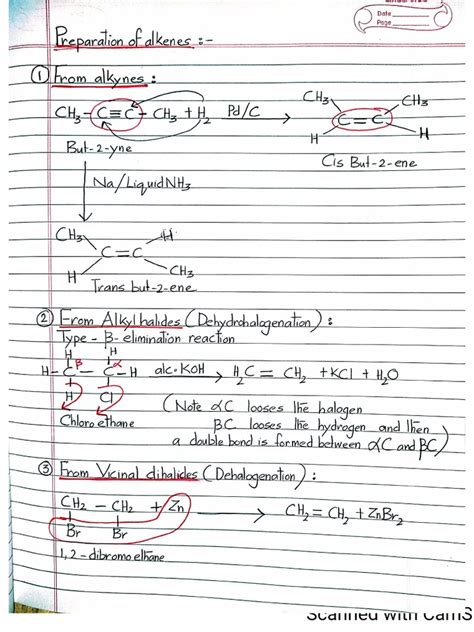 Date
Page
Preparation of alkenes :-
① From alkynes :
CH₃-C≡C-CH₃ + H₂ Pd/C → CH₃ CH₃
C=C
H H
But-2-yne
Cis But-2-ene
Na/Liquid NH₃
CH₃ H
C=C
H CH₃
Trans but-2-ene
② From Alkylhalides (Dehydrohalogenation) :
Type - β- elimination reaction
H H
H-C β - C α -H alc. KOH → H₂C = CH₂ + KCl + H₂O
H Cl
(Note αC looses the halogen
Chloroethane
βC looses the hydrogen and then
a double bond is formed between αC and βC)
③ From Vicinal dihalides (Dehalogenation) :
CH₂ - CH₂ + Zn → CH₂ = CH₂ + ZnBr₂
Br Br
1,2-dibromoethane
Scanned with CamS